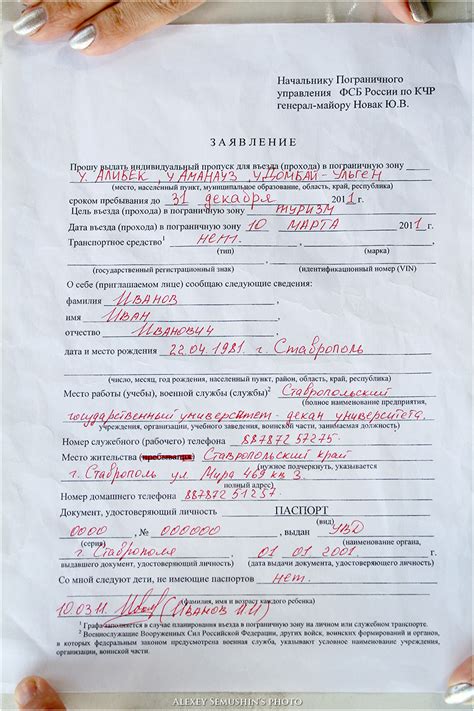 Начальнику Пограничного
управления ФСБ России по КЧР
генерал-майору Новак Ю.В.
ЗАЯВЛЕНИЕ
Прошу выдать индивидуальный пропуск для въезда (прохода) в пограничную зону
у. Алибек, у Аманауз, у Домбай-Ульген
(место, населенный пункт, муниципальное образование, область, край, республика)
сроком пребывания до 31 декабря 2011 г.
Цель въезда (прохода) в пограничную зону туризм
Дата въезда (прохода) в пограничную зону 10 марта 2011 г
Транспортное средство¹ нет.
(тип) (марка)
(государственный регистрационный знак) (идентификационный номер (VIN)
О себе (приглашаемом лице) сообщаю следующие сведения:
фамилия Иванов
имя Иван
отчество Иванович
дата и место рождения 22.04.1981. г. Ставрополь
(число, месяц, год рождения, населенный пункт, район, область, край, республика)
Место работы (учебы), военной службы (службы)² Ставропольский
(полное наименование предприятия,
государственный университет- декан университета.
учреждения, организации, учебного заведения, воинской части, занимаемая должность)
Номер служебного (рабочего) телефона 887872 57275.
Место жительства Ставропольский край
(нужное подчеркнуть, указывается
г. Ставрополь ул. Мира 469 кв 3.
полный адрес)
Номер домашнего телефона 887872 51257.
Документ, удостоверяющий личность ПАСПОРТ
(вид)
0000 , № 000000 , выдан УВД
(серия)
г. Ставрополя , 01 01 2001.
выдавшего документ, удостоверяющий личность) (дата выдачи документа, удостоверяющего личность)
Со мной следуют дети, не имеющие паспортов нет.
(фамилия, имя и возраст каждого ребенка)
10.03.11. (Иванов И.И)
¹ Графа заполняется в случае планирования въезда в пограничную зону на личном или служебном транспорте.
² Военнослужащие Вооруженных Сил Российской Федерации, других войск, воинских формирований и органов,
в которых федеральным законом предусмотрена военная служба, указывают условное наименование учреждения,
организации, воинской части.
Alexey Semushin's photo